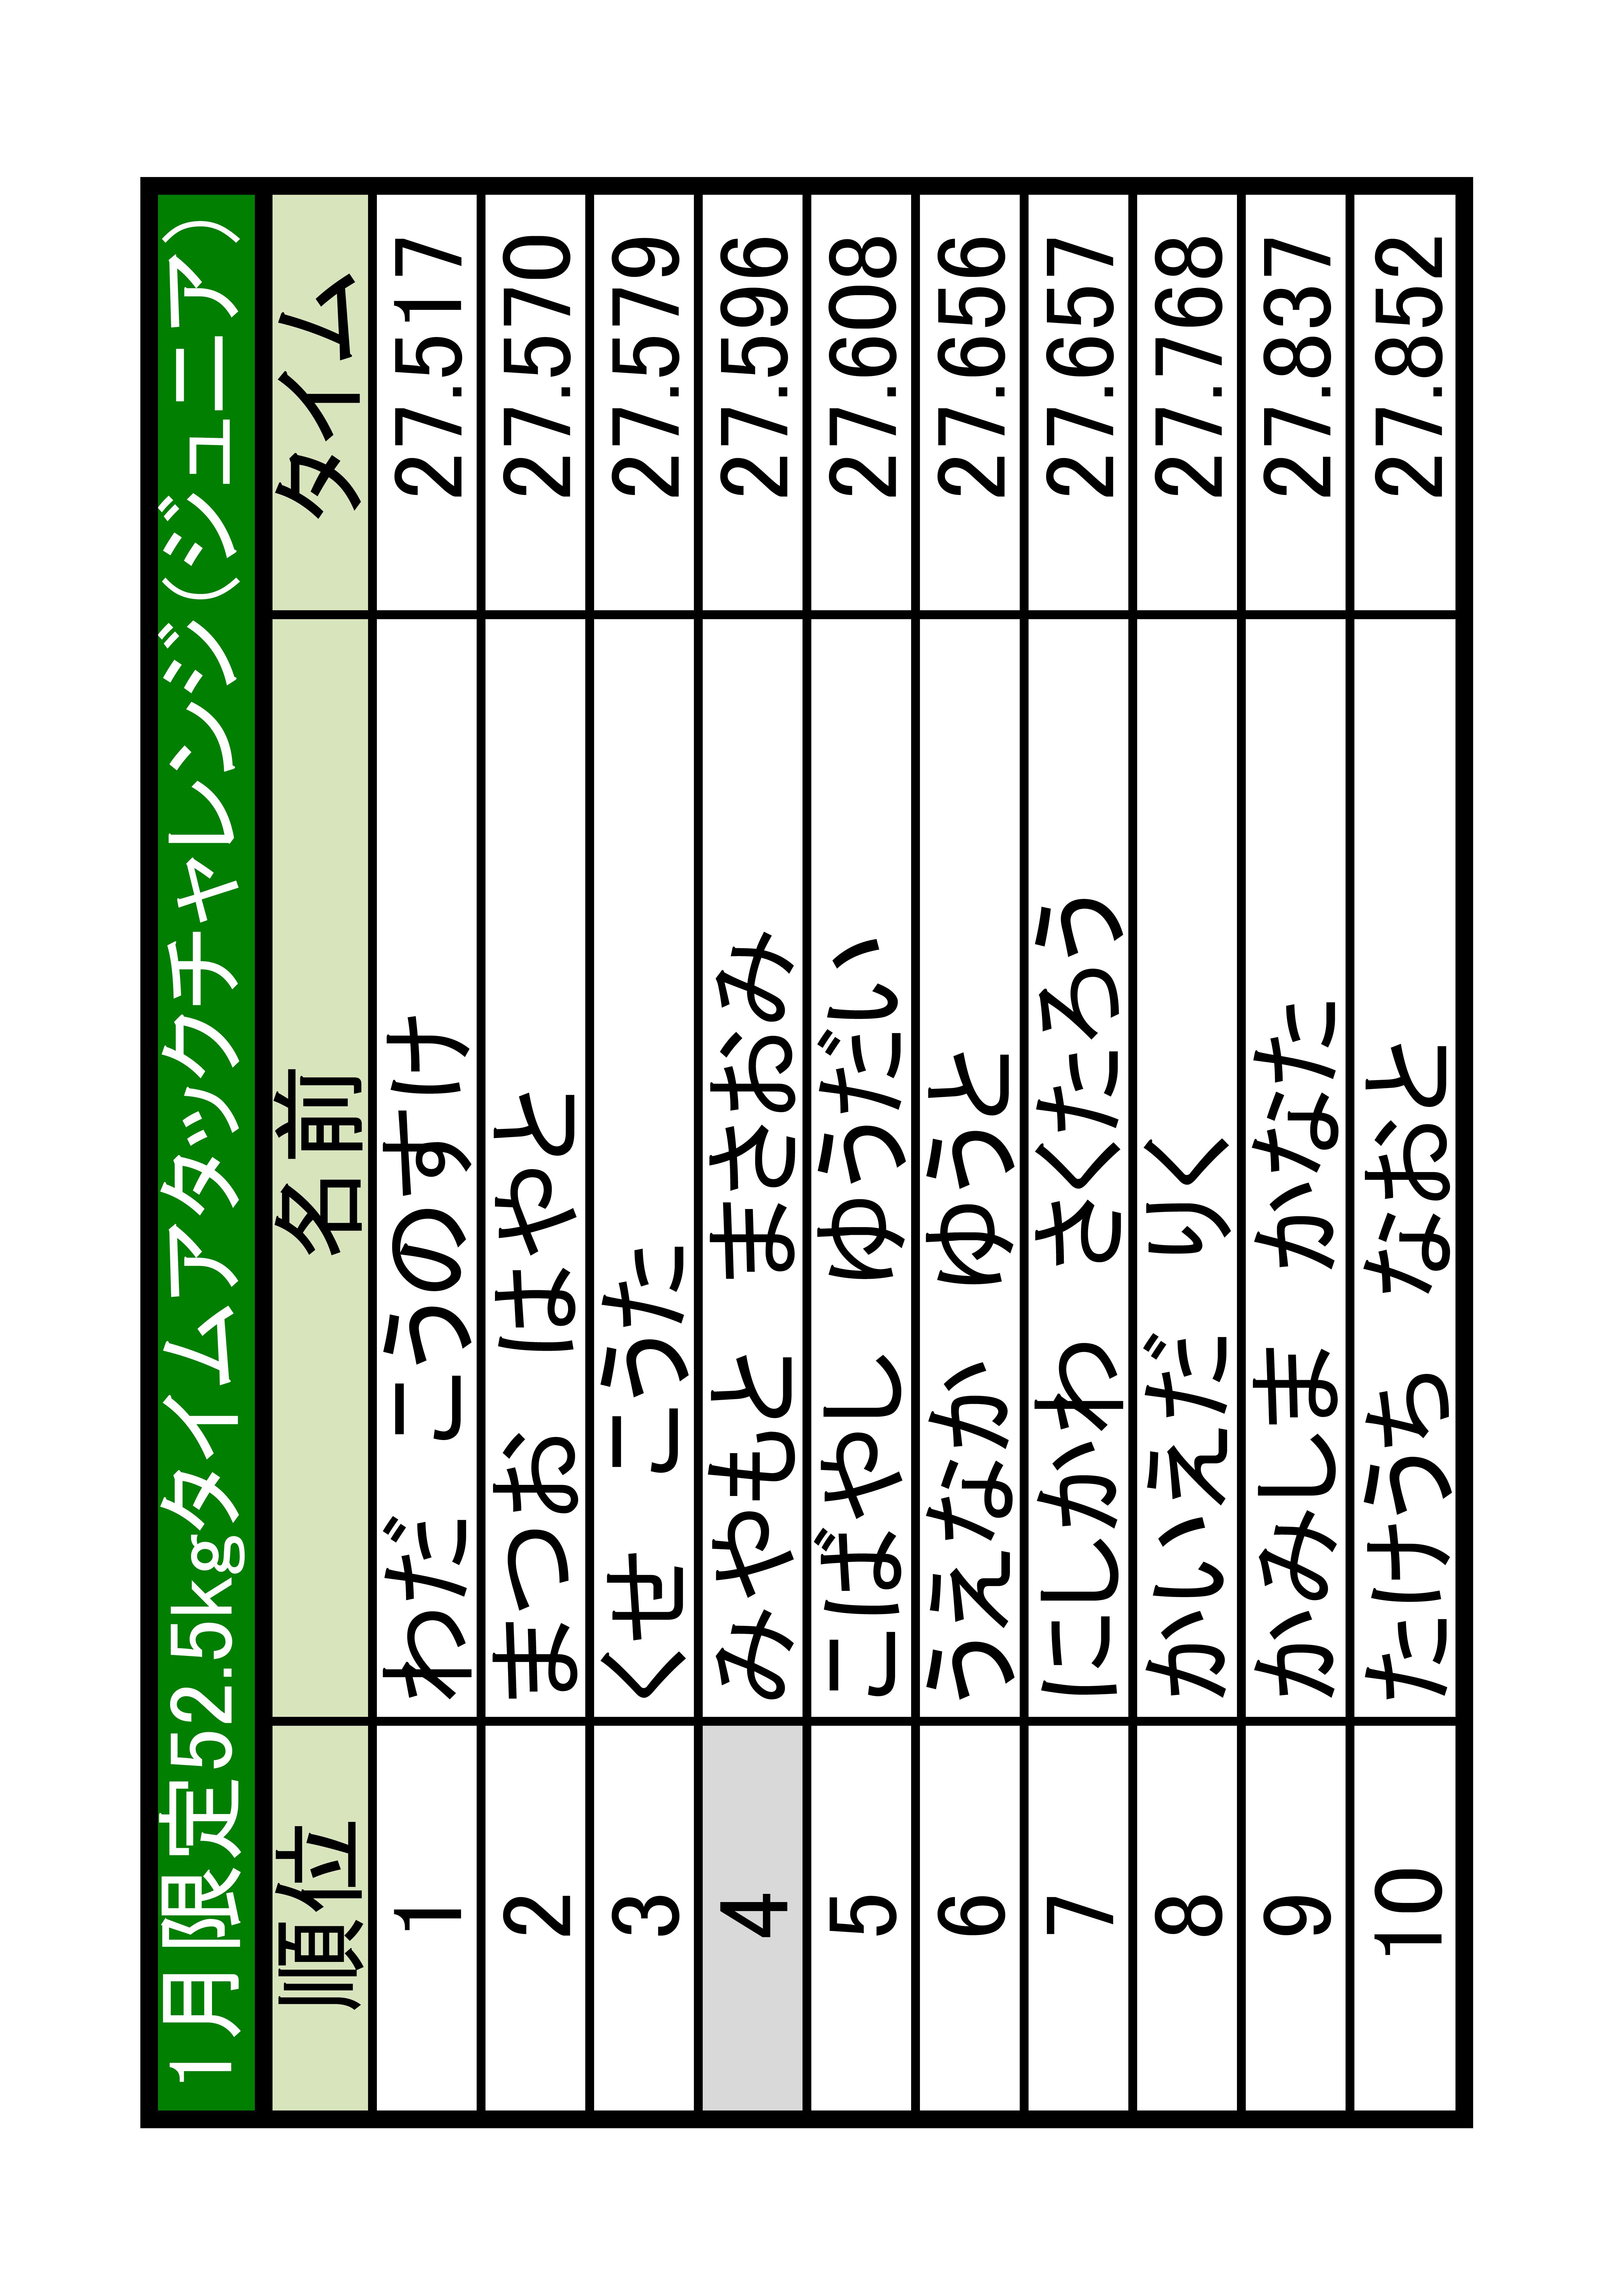 1月限定52.5kgタイムアタックチャレンジ(ジュニア)
順位 名前 タイム
1 わだ こうのすけ 27.517
2 まつお はやと 27.570
3 くせ こうた 27.579
4 みやもと まさおみ 27.596
5 こばやし ゆうだい 27.608
6 うえなか ゆうと 27.656
7 にしかわ さくたろう 27.657
8 かいえだ りく 27.768
9 かみしま かなた 27.837
10 たけうち なおと 27.852